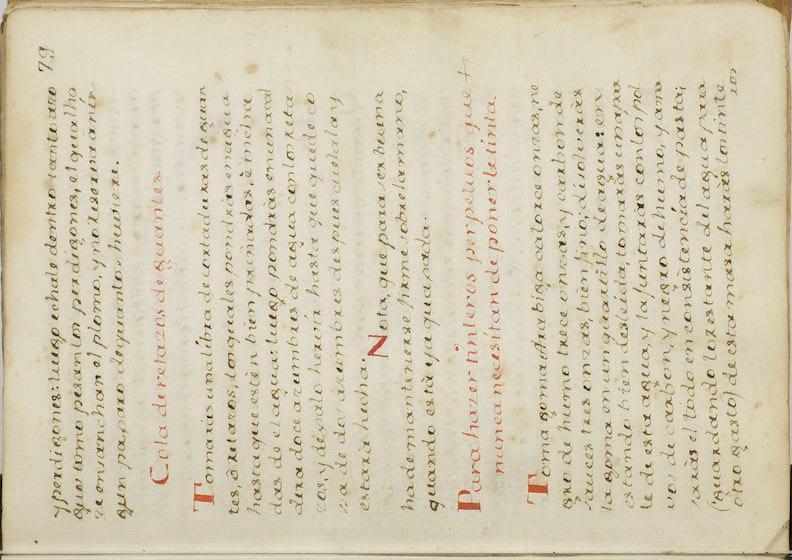 79
y perdigones: luego echale dentro tanto azo
gue como pesan los perdigones, el qual ha
ze ensanchar el plomo, y no riserá nin
gun paxaro de quantos huviere.
Cola de retazos de guantes
Tomaràs una libra de cortaduras de guan
tes, ò retazos, los quales pondràs en agua
hasta que estèn bien penadas, è incha
das de el agua: luego pondràs en una cal
dera doze azumbres de agua con los reta
zos, y dexalo hervir hasta que quede co
sa de dos azumbres despues cuelala y
estarà hecha.
Nota, que para ser buena
ha de mantenerse firme sobre la mano,
quando està ya quaxada.
Para hazer tinteros perpetuos que
nunca necesitan de ponerle tinta.
Toma goma Arabiga catorce onzas, ne
gro de humo trece onzas, y carbon de
sauces tres onzas bien fino; disolveràs
la goma en un quartillo de agua: en
estando bien desleida, tomaràs una par
te de esta agua, y la juntaràs con los pol
vos de carbon, y negro de humo, y ama
saràs el todo en consistencia de pasta;
(guardando lo restante del agua para
otro gasto) de esta masa haràs los tinte
ros